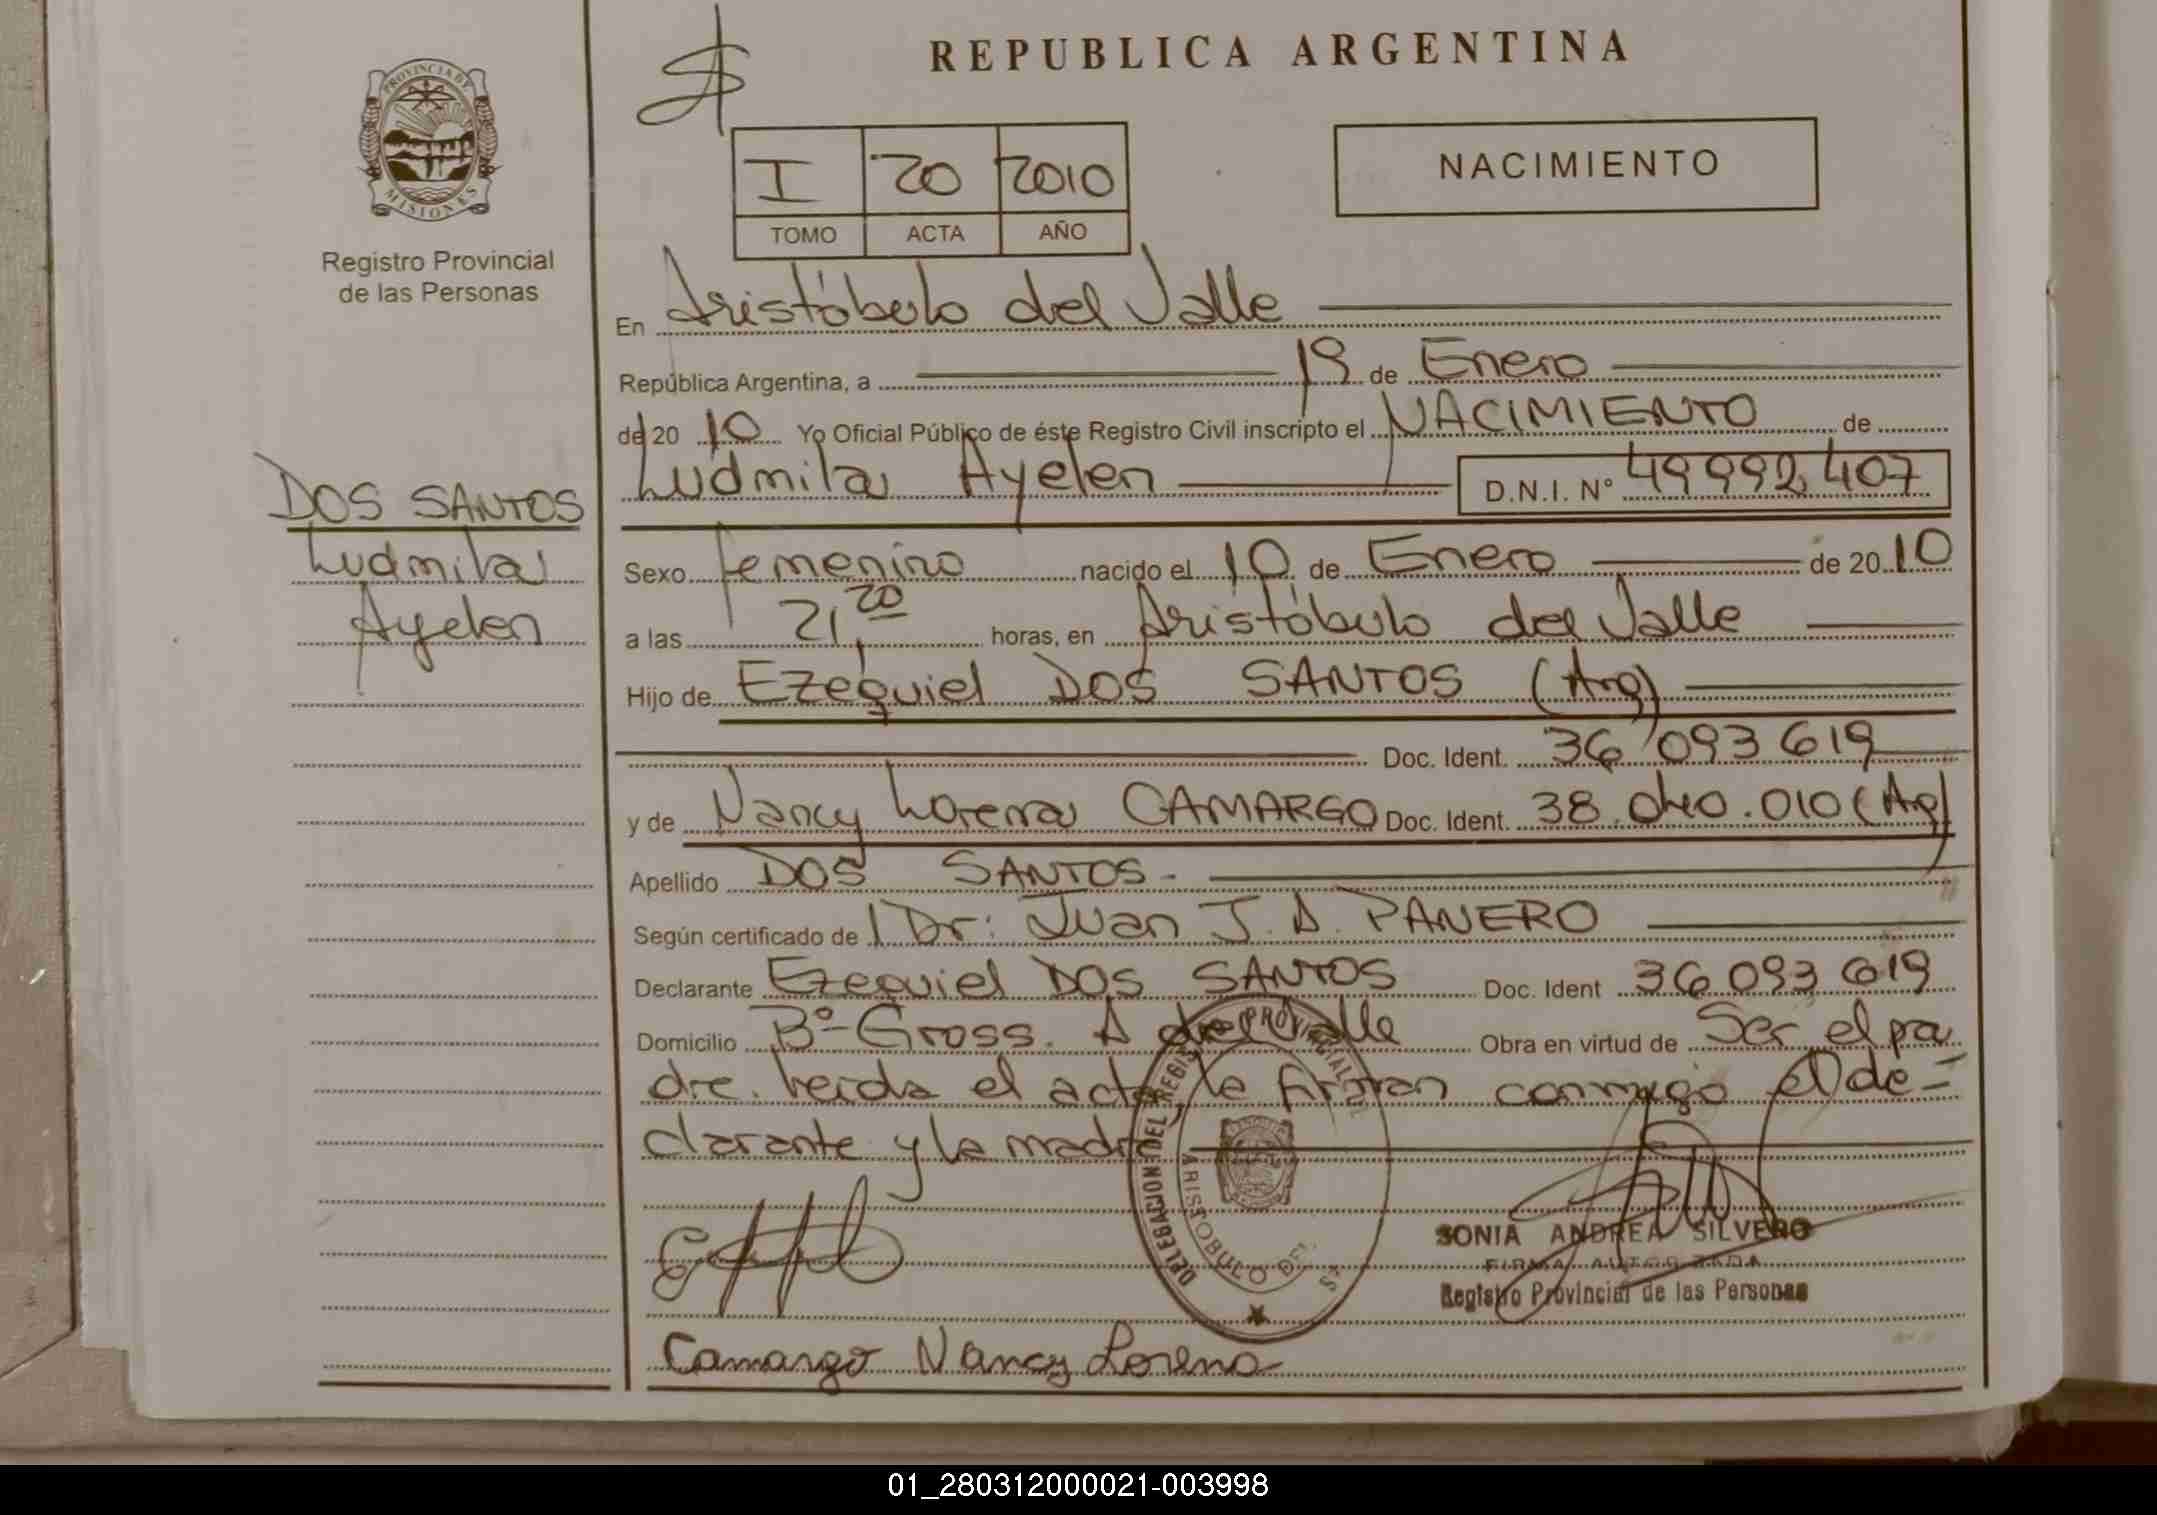 REPUBLICA ARGENTINA
PROVINCIA DE
MISIONES
Registro Provincial
de las Personas
I 20 2010
TOMO ACTA AÑO
NACIMIENTO
En Aristóbulo del Valle
República Argentina, a 19 de Enero
de 20 10 Yo Oficial Público de éste Registro Civil inscripto el NACIMIENTO de
Ludmila Ayelen D.N.I. N° 49992407
DOS SANTOS
Ludmila
Ayelen
Sexo femenino nacido el 10 de Enero de 20 10
a las 21,20 horas, en Aristóbulo del Valle
Hijo de Ezequiel DOS SANTOS (Arg)
Doc. Ident. 36 093 619
y de Nancy Lorena CAMARGO Doc. Ident. 38.040.010 (Arg)
Apellido DOS SANTOS.
Según certificado de Dr: Juan J. A. PANERO
Declarante Ezequiel DOS SANTOS Doc. Ident 36 093 619
Domicilio B°-Gross. A del Valle Obra en virtud de Ser el pa
dre. Leida el acta, la firman conmigo el de-
clarante y la madre
DELEGACION DEL REGISTRO PROVINCIAL
ARISTOBULO DEL
SONIA ANDREA SILVERO
FIRMA AUTORIZADA
Registro Provincial de las Personas
Camargo Nancy Lorena
01_280312000021-003998